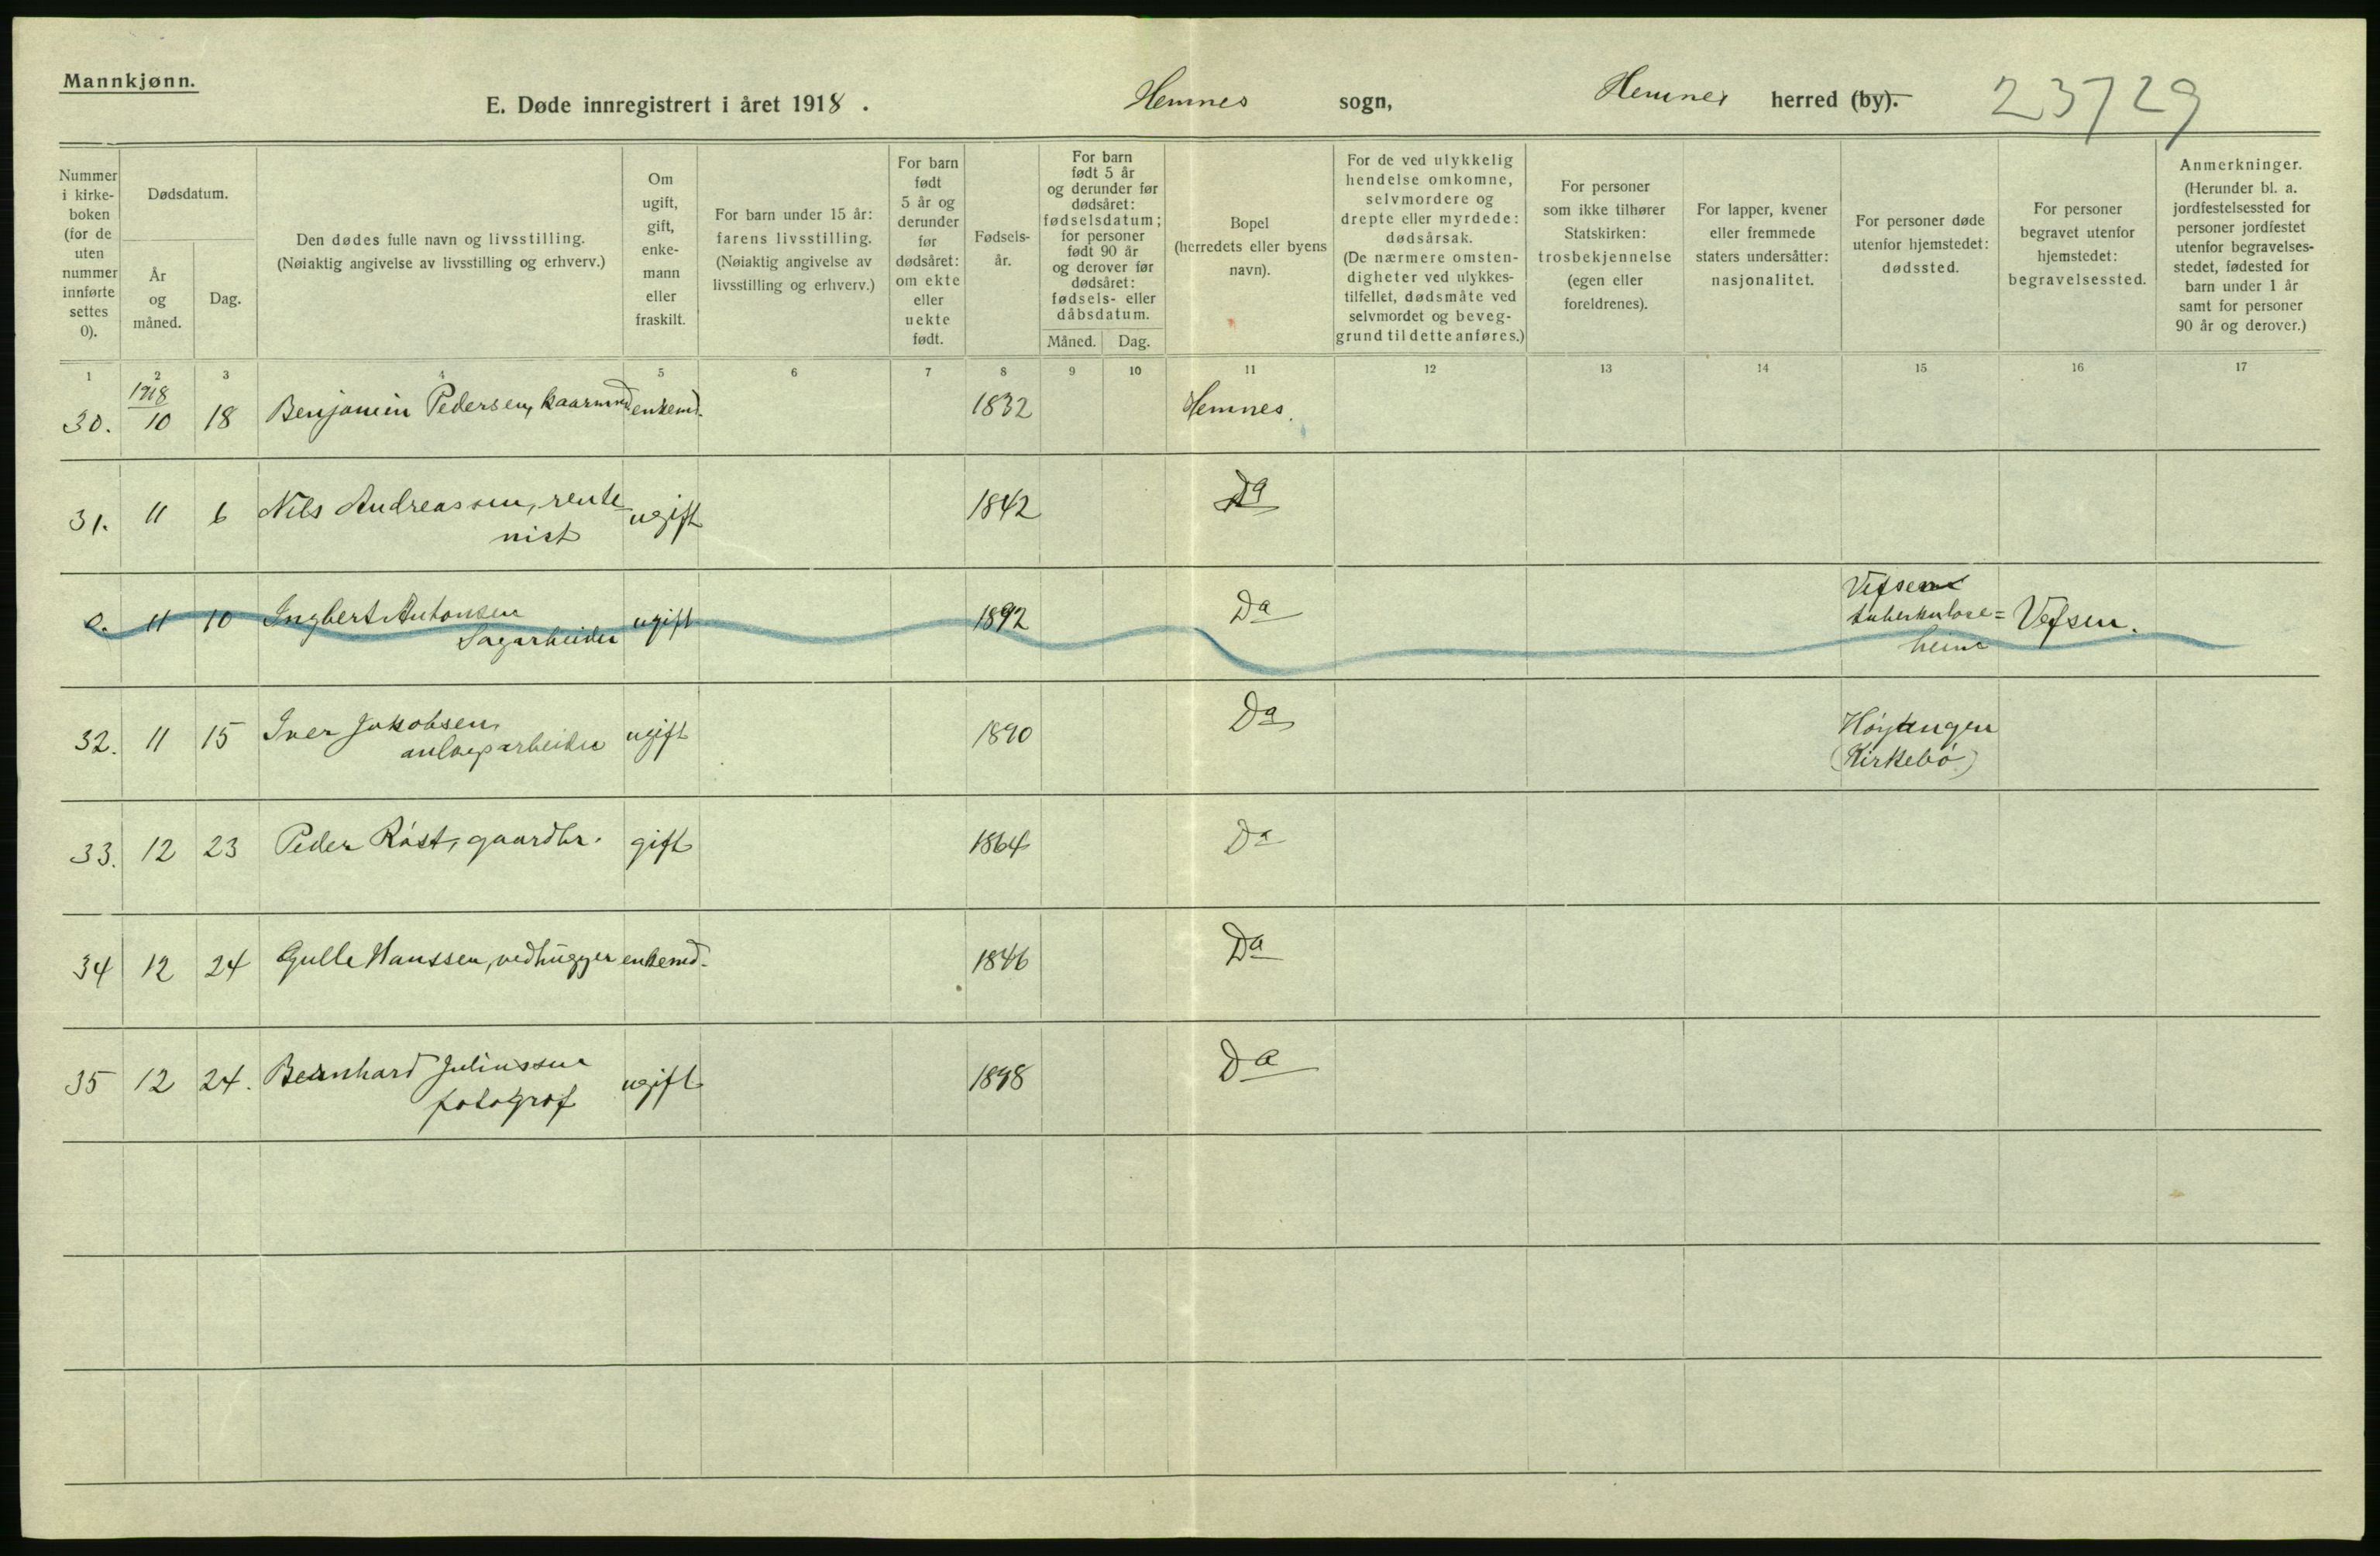 Mannkjønn.
E. Døde innregistrert i året 1918. Hemnes sogn, Hemnes herred (by). 23729
Nummer i kirke-boken (for de uten nummer innførte settes 0).
Dødsdatum.
År og måned.
Dag.
Den dødes fulle navn og livsstilling.
(Nøiaktig angivelse av livsstilling og erhverv.)
Om ugift, gift, enke-mann eller fraskilt.
For barn under 15 år: farens livsstilling.
(Nøiaktig angivelse av livsstilling og erhverv.)
For barn født 5 år og derunder før dødsåret: om ekte eller uekte født.
Fødsels-år.
For barn født 5 år og derunder før dødsåret: fødselsdatum; for personer født 90 år og derover før dødsåret: fødsels- eller dåbsdatum.
Måned.
Dag.
Bopel
(herredets eller byens navn).
For de ved ulykkelig hendelse omkomne, selvmordere og drepte eller myrdede: dødsårsak.
(De nærmere omsten-digheter ved ulykkes-tilfellet, dødsmåte ved selvmordet og beveg-grund til dette anføres.)
For personer som ikke tilhører Statskirken: trosbekjennelse (egen eller foreldrenes).
For lapper, kvener eller fremmede staters undersåtter: nasjonalitet.
For personer døde utenfor hjemstedet: dødssted.
For personer begravet utenfor hjemstedet: begravelsessted.
Anmerkninger.
(Herunder bl. a. jordfestelsessted for personer jordfestet utenfor begravelses-stedet, fødested for barn under 1 år samt for personer 90 år og derover.)
1 2 3 4 5 6 7 8 9 10 11 12 13 14 15 16 17
1918
30. 10 18 Benjamin Pedersen, kaarmnd enkemd. 1832 Hemnes.
31. 11 6 Nils Andreassen, rente ugift 1842 Do
nist
0. 11 10 Ingbert Antonsen ugift 1892 Do Vefsen tuberkulose= Vefsen.
Sagarbeider heim
32. 11 15 Iver Jakobsen, ugift 1890 Do Höyangen
anlægsarbeider (Kirkebö)
33. 12 23 Peder Röst, gaardbr. gift 1864 Do
34 12 24 Gulle Hanssen, vedhugger enkemd. 1846 Do
35 12 24. Bernhard Juliussen ugift 1898 Do
fotograf